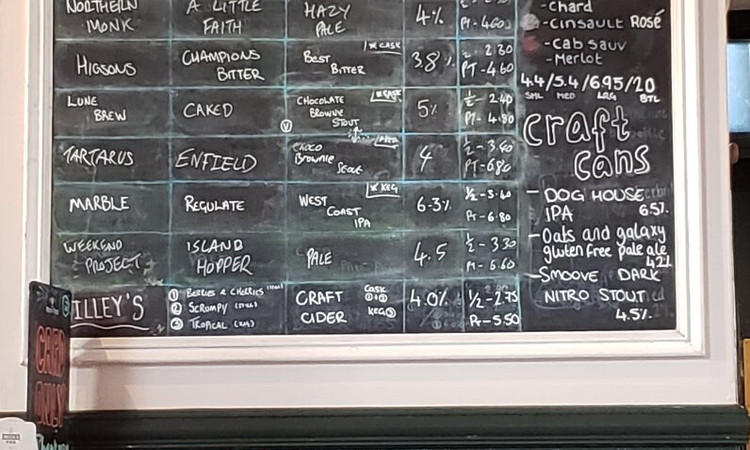 NORTHERN MONK A LITTLE FAITH HAZY PALE 4% Pt- 4.60
HIGSONS CHAMPIONS BITTER BEST BITTER * CASK 3.8% ½- 2.30 PT- 4.60
LUNE BREW CAKED CHOCOLATE BROWNIE STOUT V * CASK 5% ½- 2.40 PT- 4.80
TARTARUS ENFIELD CHOCO BROWNIE 4 ½- 3.40 PT- 6.80
MARBLE REGULATE WEST COAST IPA * KEG 6.3% ½-3.40 Pt- 6.80
WEEKEND PROJECT ISLAND HOPPER PALE 4.5 ½- 3.30 Pt- 6.60
ILLEY'S ① BERRIES & CHERRIES CRAFT CIDER CASK ①+② KEG③ 4.0% ½-2.75 Pt-5.50
② SCRUMPY
③ TROPICAL
-Chard
-Cinsault Rosé
-Cab sauv
-Merlot
4.4/5.4/6.95/20
SML MED LRG BTL
craft
cans
- DOG HOUSE
IPA 6.5%.
-Oats and galaxy
gluten free pale ale
4.2%
-SMOOVE DARK
NITRO STOUT
4.5%.
CARD
ONLY